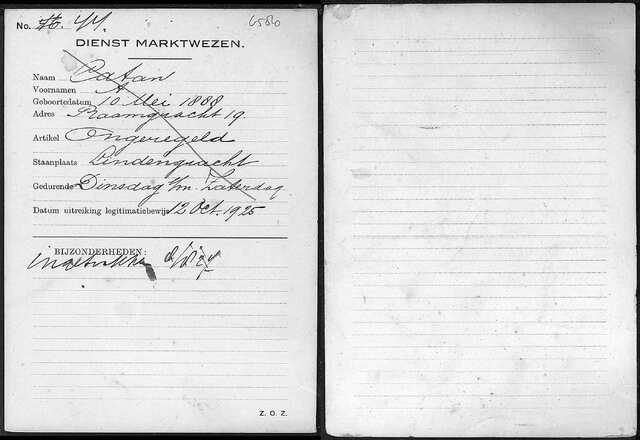 No. 44.
6580
DIENST MARKTWEZEN.
Naam Catan
Voornamen A
Geboortedatum 10 Mei 1888
Adres Raamgracht 19.
Artikel Ongeregeld
Staanplaats Lindengracht
Gedurende Dinsdag t/m. Zaterdag
Datum uitreiking legitimatiebewijs 12 Oct. 1925
BIJZONDERHEDEN:
ingetrokken
Z. O. Z.